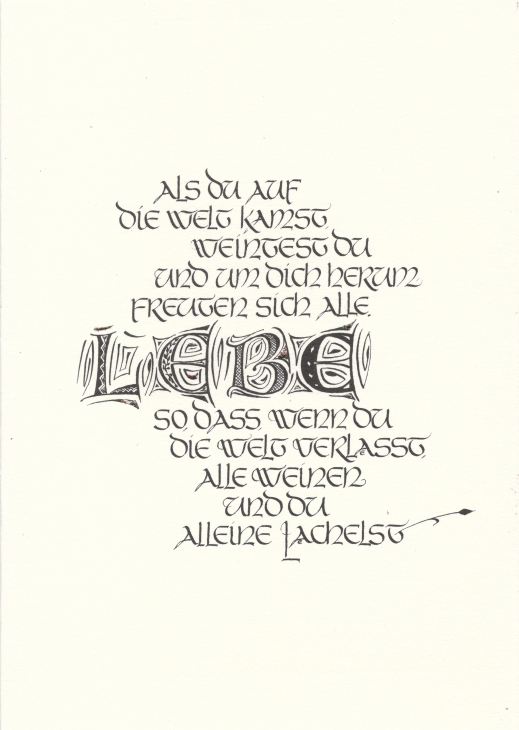 ALS DU AUF
DIE WELT KAMST,
WEINTEST DU
UND UM DICH HERUM
FREUTEN SICH ALLE.
LEBE
SO, DASS, WENN DU
DIE WELT VERLASST,
ALLE WEINEN
UND DU
ALLEINE LACHELST